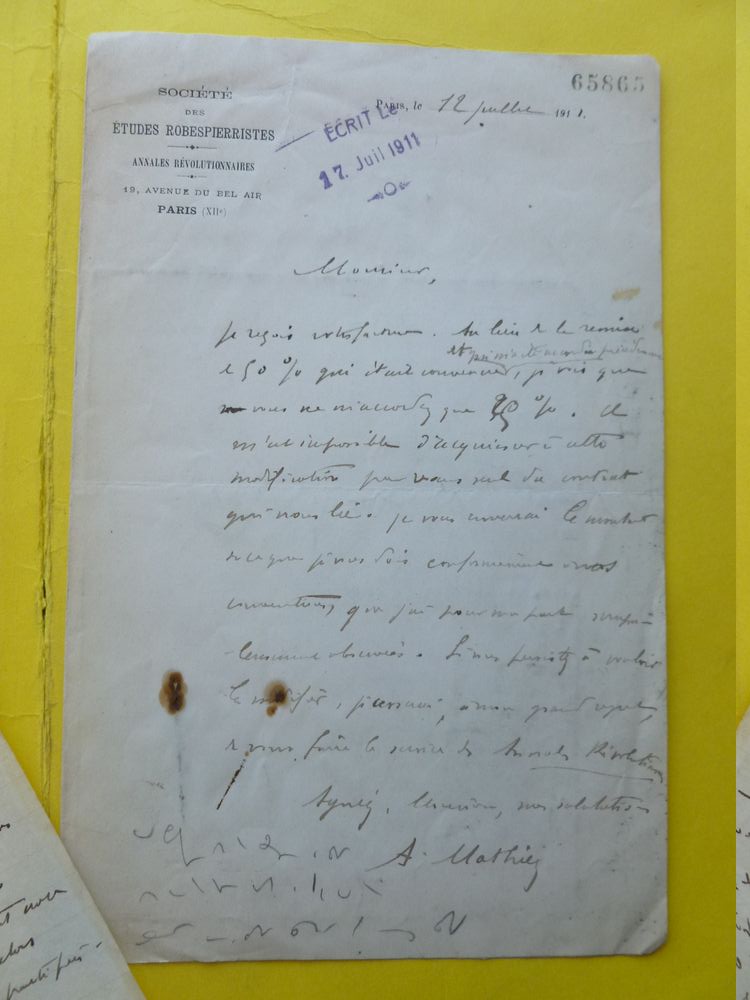 65865
SOCIÉTÉ
DES
ÉTUDES ROBESPIERRISTES
ANNALES RÉVOLUTIONNAIRES
19, AVENUE DU BEL AIR
PARIS (XIIe)
PARIS, le 12 juillet 1911.
ÉCRIT LE
17. Juil 1911
Monsieur,
je reçois votre facture. Au lieu de la remise
de 50 % qui était convenue, et je vois que
vous ne m'accordez que % . Il
m'est impossible d'acquiescer à cette
modification par vous seul du contrat
qui nous lie. je vous enverrai le montant
de ce que je vous dois conformément à nos
conventions, que j'ai pour ma part scrupu-
leusement observées. Si vous persistez à vouloir
le modifier, je cesserai, à mon grand regret,
de vous faire le service des Annales Révolutionn
Agréez, Monsieur, mes salutations
A. Mathiez